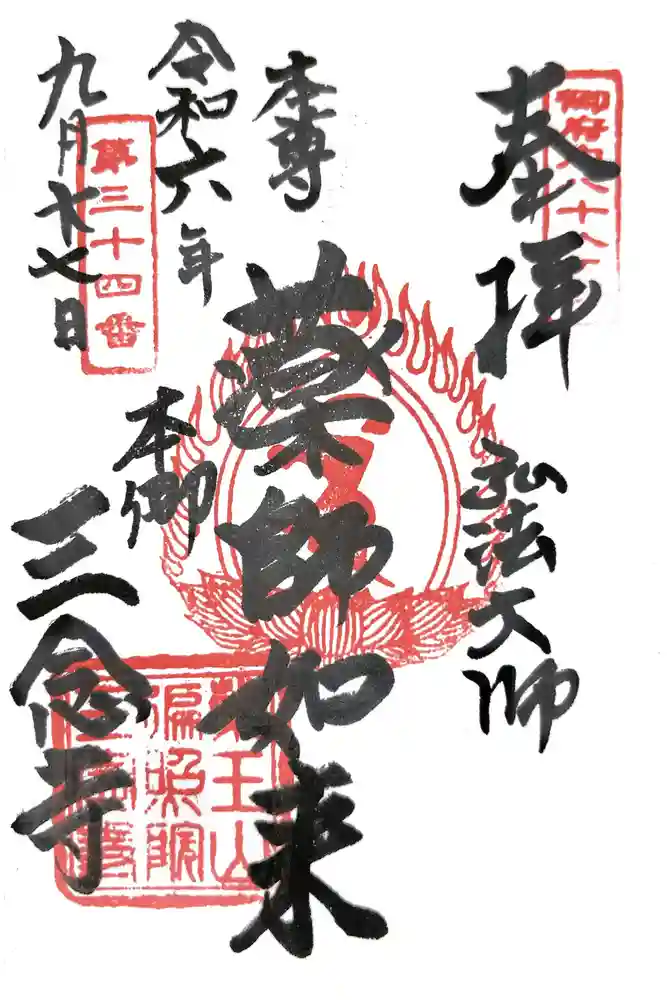 奉拝
御府内八十八
弘法大師
本尊
薬師如来
令和六年
九月 七日
第三十四番
本郷
三念寺
王山
照院